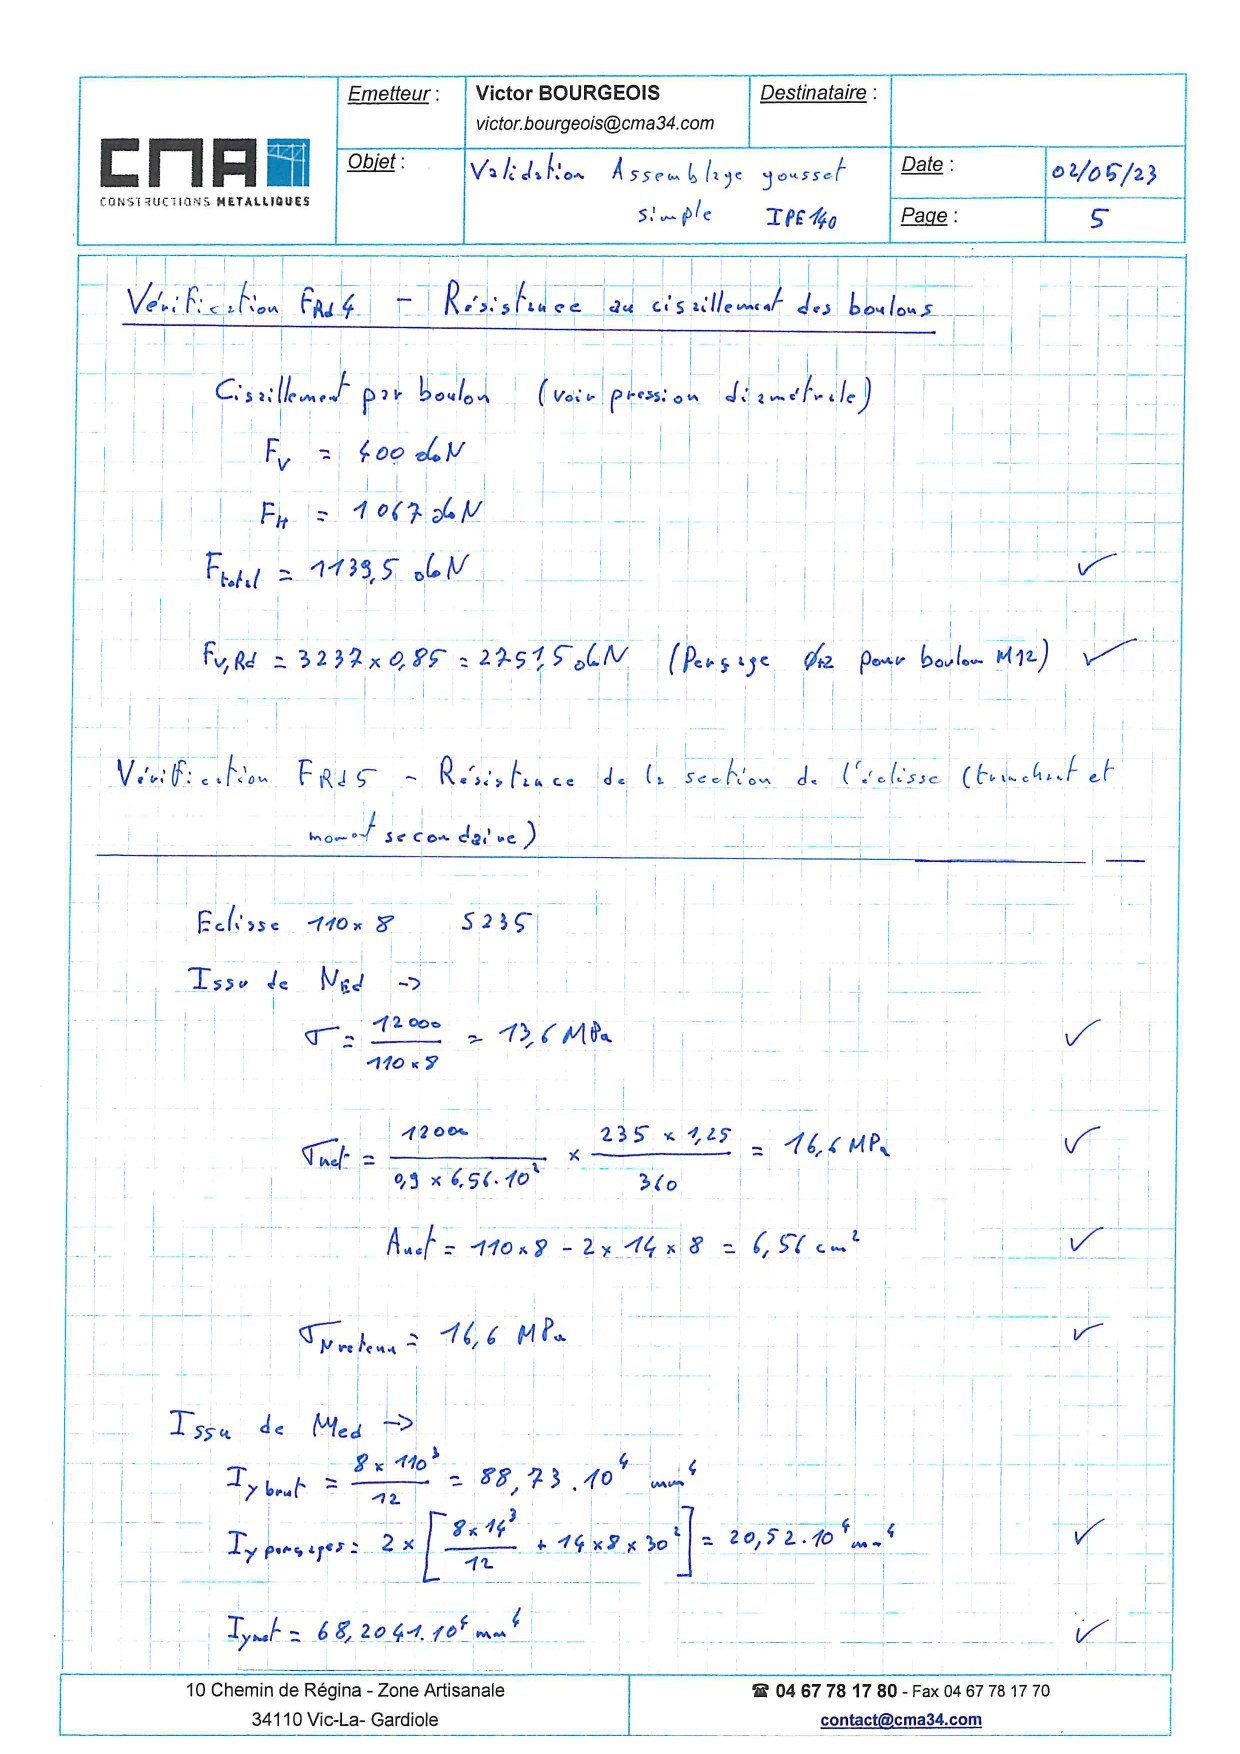 CMA
CONSTRUCTIONS METALLIQUES
Emetteur : Victor BOURGEOIS
victor.bourgeois@cma34.com
Destinataire :
Objet : Validation Assemblage gousset
simple IPE 140
Date : 02/05/23
Page : 5
Vérification FRd4 - Résistance au cisaillement des boulons
Cisaillement par boulon (voir pression diamétrale)
Fv = 400 daN
FH = 1067 daN
Ftotal = 1139,5 daN ✓
Fv,Rd = 3237 x 0,85 = 2751,5 daN (Perçage Ø12 pour boulon M12) ✓
Vérification FRd5 - Résistance de la section de l'éclisse (tranchant et
moment secondaire)
Eclisse 110 x 8 S235
Issu de NEd ->
σ = 12000 / (110 x 8) = 13,6 MPa ✓
σnet = 12000 / (0,9 x 6,56.10²) x (235 x 1,25) / 360 = 16,6 MPa ✓
Anet = 110 x 8 - 2 x 14 x 8 = 6,56 cm² ✓
σN retenu = 16,6 MPa ✓
Issu de Med ->
Iy brut = (8 x 110³) / 12 = 88,73.10⁴ mm⁴
Iy perçages = 2 x [ (8 x 14³) / 12 + 14 x 8 x 30² ] = 20,52.10⁴ mm⁴ ✓
Iynet = 68,2041.10⁴ mm⁴ ✓
10 Chemin de Régina - Zone Artisanale
34110 Vic-La- Gardiole
☎ 04 67 78 17 80 - Fax 04 67 78 17 70
contact@cma34.com